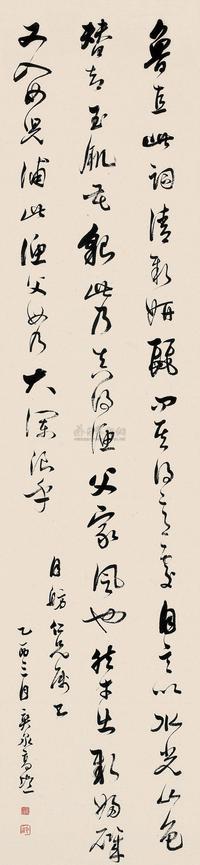 魯直此詞清新妍麗問其得意處自言以水光山色
替却玉肌花貌此乃真得漁父家風也然才出新婦磯
又入女兒浦此漁父毋乃大瀾浪乎
舫仁兄屬正
乙酉三月